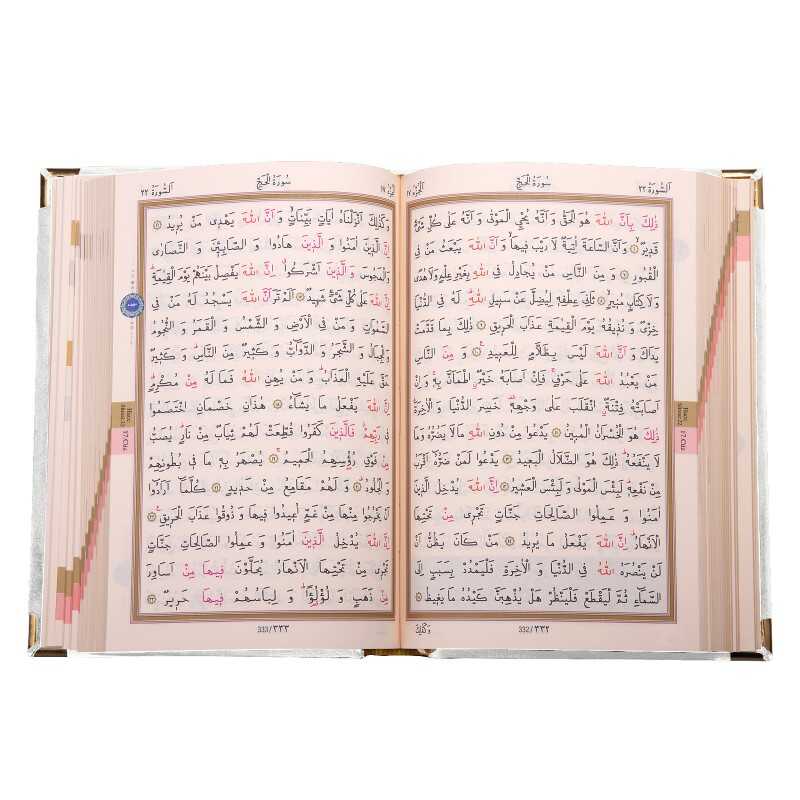 اَلسُّورَةُ ٢٢
سُورَةُ الْحَجِّ
اَلْجُزْءُ ١٧
ذٰلِكَ بِاَنَّ اللّٰهَ هُوَ الْحَقُّ وَ اَنَّهُ يُحْيِ الْمَوْتٰى وَ اَنَّهُ عَلٰى كُلِّ شَيْءٍ
قَدِيرٌ ٦ وَ اَنَّ السَّاعَةَ اٰتِيَةٌ لَا رَيْبَ فِيهَا وَ اَنَّ اللّٰهَ يَبْعَثُ مَنْ فِى
الْقُبُورِ ٧ وَ مِنَ النَّاسِ مَنْ يُجَادِلُ فِى اللّٰهِ بِغَيْرِ عِلْمٍ وَلَا هُدًى
وَلَا كِتَابٍ مُنِيرٍ ٨ ثَانِىَ عِطْفِهِ لِيُضِلَّ عَنْ سَبِيلِ اللّٰهِ لَهُ فِى الدُّنْيَا
خِزْىٌ وَ نُذِيقُهُ يَوْمَ الْقِيٰمَةِ عَذَابَ الْحَرِيقِ ٩ ذٰلِكَ بِمَا قَدَّمَتْ
يَدَاكَ وَ اَنَّ اللّٰهَ لَيْسَ بِظَلَّامٍ لِلْعَبِيدِ ١٠ وَ مِنَ النَّاسِ
مَنْ يَعْبُدُ اللّٰهَ عَلٰى حَرْفٍ فَاِنْ اَصَابَهُ خَيْرٌ اطْمَاَنَّ بِهِ وَ اِنْ
اَصَابَتْهُ فِتْنَةٌ انْقَلَبَ عَلٰى وَجْهِهِ خَسِرَ الدُّنْيَا وَ الْاٰخِرَةَ
ذٰلِكَ هُوَ الْخُسْرَانُ الْمُبِينُ ١١ يَدْعُوا مِنْ دُونِ اللّٰهِ مَا لَا يَضُرُّهُ وَ مَا
لَا يَنْفَعُهُ ذٰلِكَ هُوَ الضَّلَالُ الْبَعِيدُ ١٢ يَدْعُوا لَمَنْ ضَرُّهُ اَقْرَبُ
مِنْ نَفْعِهِ لَبِئْسَ الْمَوْلٰى وَ لَبِئْسَ الْعَشِيرُ ١٣ اِنَّ اللّٰهَ يُدْخِلُ الَّذِينَ
اٰمَنُوا وَ عَمِلُوا الصَّالِحَاتِ جَنَّاتٍ تَجْرِى مِنْ تَحْتِهَا
الْاَنْهَارُ اِنَّ اللّٰهَ يَفْعَلُ مَا يُرِيدُ ١٤ مَنْ كَانَ يَظُنُّ اَنْ
لَنْ يَنْصُرَهُ اللّٰهُ فِى الدُّنْيَا وَ الْاٰخِرَةِ فَلْيَمْدُدْ بِسَبَبٍ اِلَى
السَّمَاءِ ثُمَّ لْيَقْطَعْ فَلْيَنْظُرْ هَلْ يُذْهِبَنَّ كَيْدُهُ مَا يَغِيظُ ١٥
332/٣٣٢
وَكَذٰلِكَ
Hacc
Sûresi 22
17.Cüz
اَلْجُزْءُ ١٧
سُورَةُ الْحَجِّ
اَلسُّورَةُ ٢٢
وَ كَذٰلِكَ اَنْزَلْنَاهُ اٰيَاتٍ بَيِّنَاتٍ وَ اَنَّ اللّٰهَ يَهْدِى مَنْ يُرِيدُ ١٦
اِنَّ الَّذِينَ اٰمَنُوا وَ الَّذِينَ هَادُوا وَ الصَّابِئِينَ وَ النَّصَارٰى
وَ الْمَجُوسَ وَ الَّذِينَ اَشْرَكُوا اِنَّ اللّٰهَ يَفْصِلُ بَيْنَهُمْ يَوْمَ الْقِيٰمَةِ
اِنَّ اللّٰهَ عَلٰى كُلِّ شَيْءٍ شَهِيدٌ ١٧ اَلَمْ تَرَ اَنَّ اللّٰهَ يَسْجُدُ لَهُ مَنْ فِى
السَّمٰوَاتِ وَ مَنْ فِى الْاَرْضِ وَ الشَّمْسُ وَ الْقَمَرُ وَ النُّجُومُ
وَ الْجِبَالُ وَ الشَّجَرُ وَ الدَّوَابُّ وَ كَثِيرٌ مِنَ النَّاسِ وَ كَثِيرٌ
حَقَّ عَلَيْهِ الْعَذَابُ وَ مَنْ يُهِنِ اللّٰهُ فَمَا لَهُ مِنْ مُكْرِمٍ
اِنَّ اللّٰهَ يَفْعَلُ مَا يَشَاءُ ١٨ هٰذَانِ خَصْمَانِ اخْتَصَمُوا
فِى رَبِّهِمْ فَالَّذِينَ كَفَرُوا قُطِّعَتْ لَهُمْ ثِيَابٌ مِنْ نَارٍ يُصَبُّ
مِنْ فَوْقِ رُؤُسِهِمُ الْحَمِيمُ ١٩ يُصْهَرُ بِهِ مَا فِى بُطُونِهِمْ
وَ الْجُلُودُ ٢٠ وَ لَهُمْ مَقَامِعُ مِنْ حَدِيدٍ ٢١ كُلَّمَا اَرَادُوا
اَنْ يَخْرُجُوا مِنْهَا مِنْ غَمٍّ اُعِيدُوا فِيهَا وَ ذُوقُوا عَذَابَ الْحَرِيقِ ٢٢
اِنَّ اللّٰهَ يُدْخِلُ الَّذِينَ اٰمَنُوا وَ عَمِلُوا الصَّالِحَاتِ جَنَّاتٍ
تَجْرِى مِنْ تَحْتِهَا الْاَنْهَارُ يُحَلَّوْنَ فِيهَا مِنْ اَسَاوِرَ
مِنْ ذَهَبٍ وَ لُؤْلُؤًا وَ لِبَاسُهُمْ فِيهَا حَرِيرٌ ٢٣
333/٣٣٣
Hacc
Sûresi 22
17.Cüz